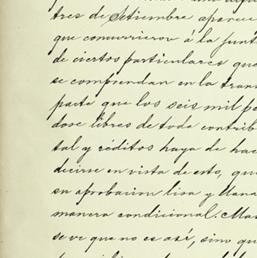 tres de Setiembre aparece
que concurrieron á la junt
de ciertos particulares que
se comprendan en la tran
parte que los seis mil pe
dose libres de toda contrib
tal y réditos haya de hac
decirse en vista de esto, que
su aprobacion lisa y llana
manera condicional. Mas
se ve que no es así, sino que